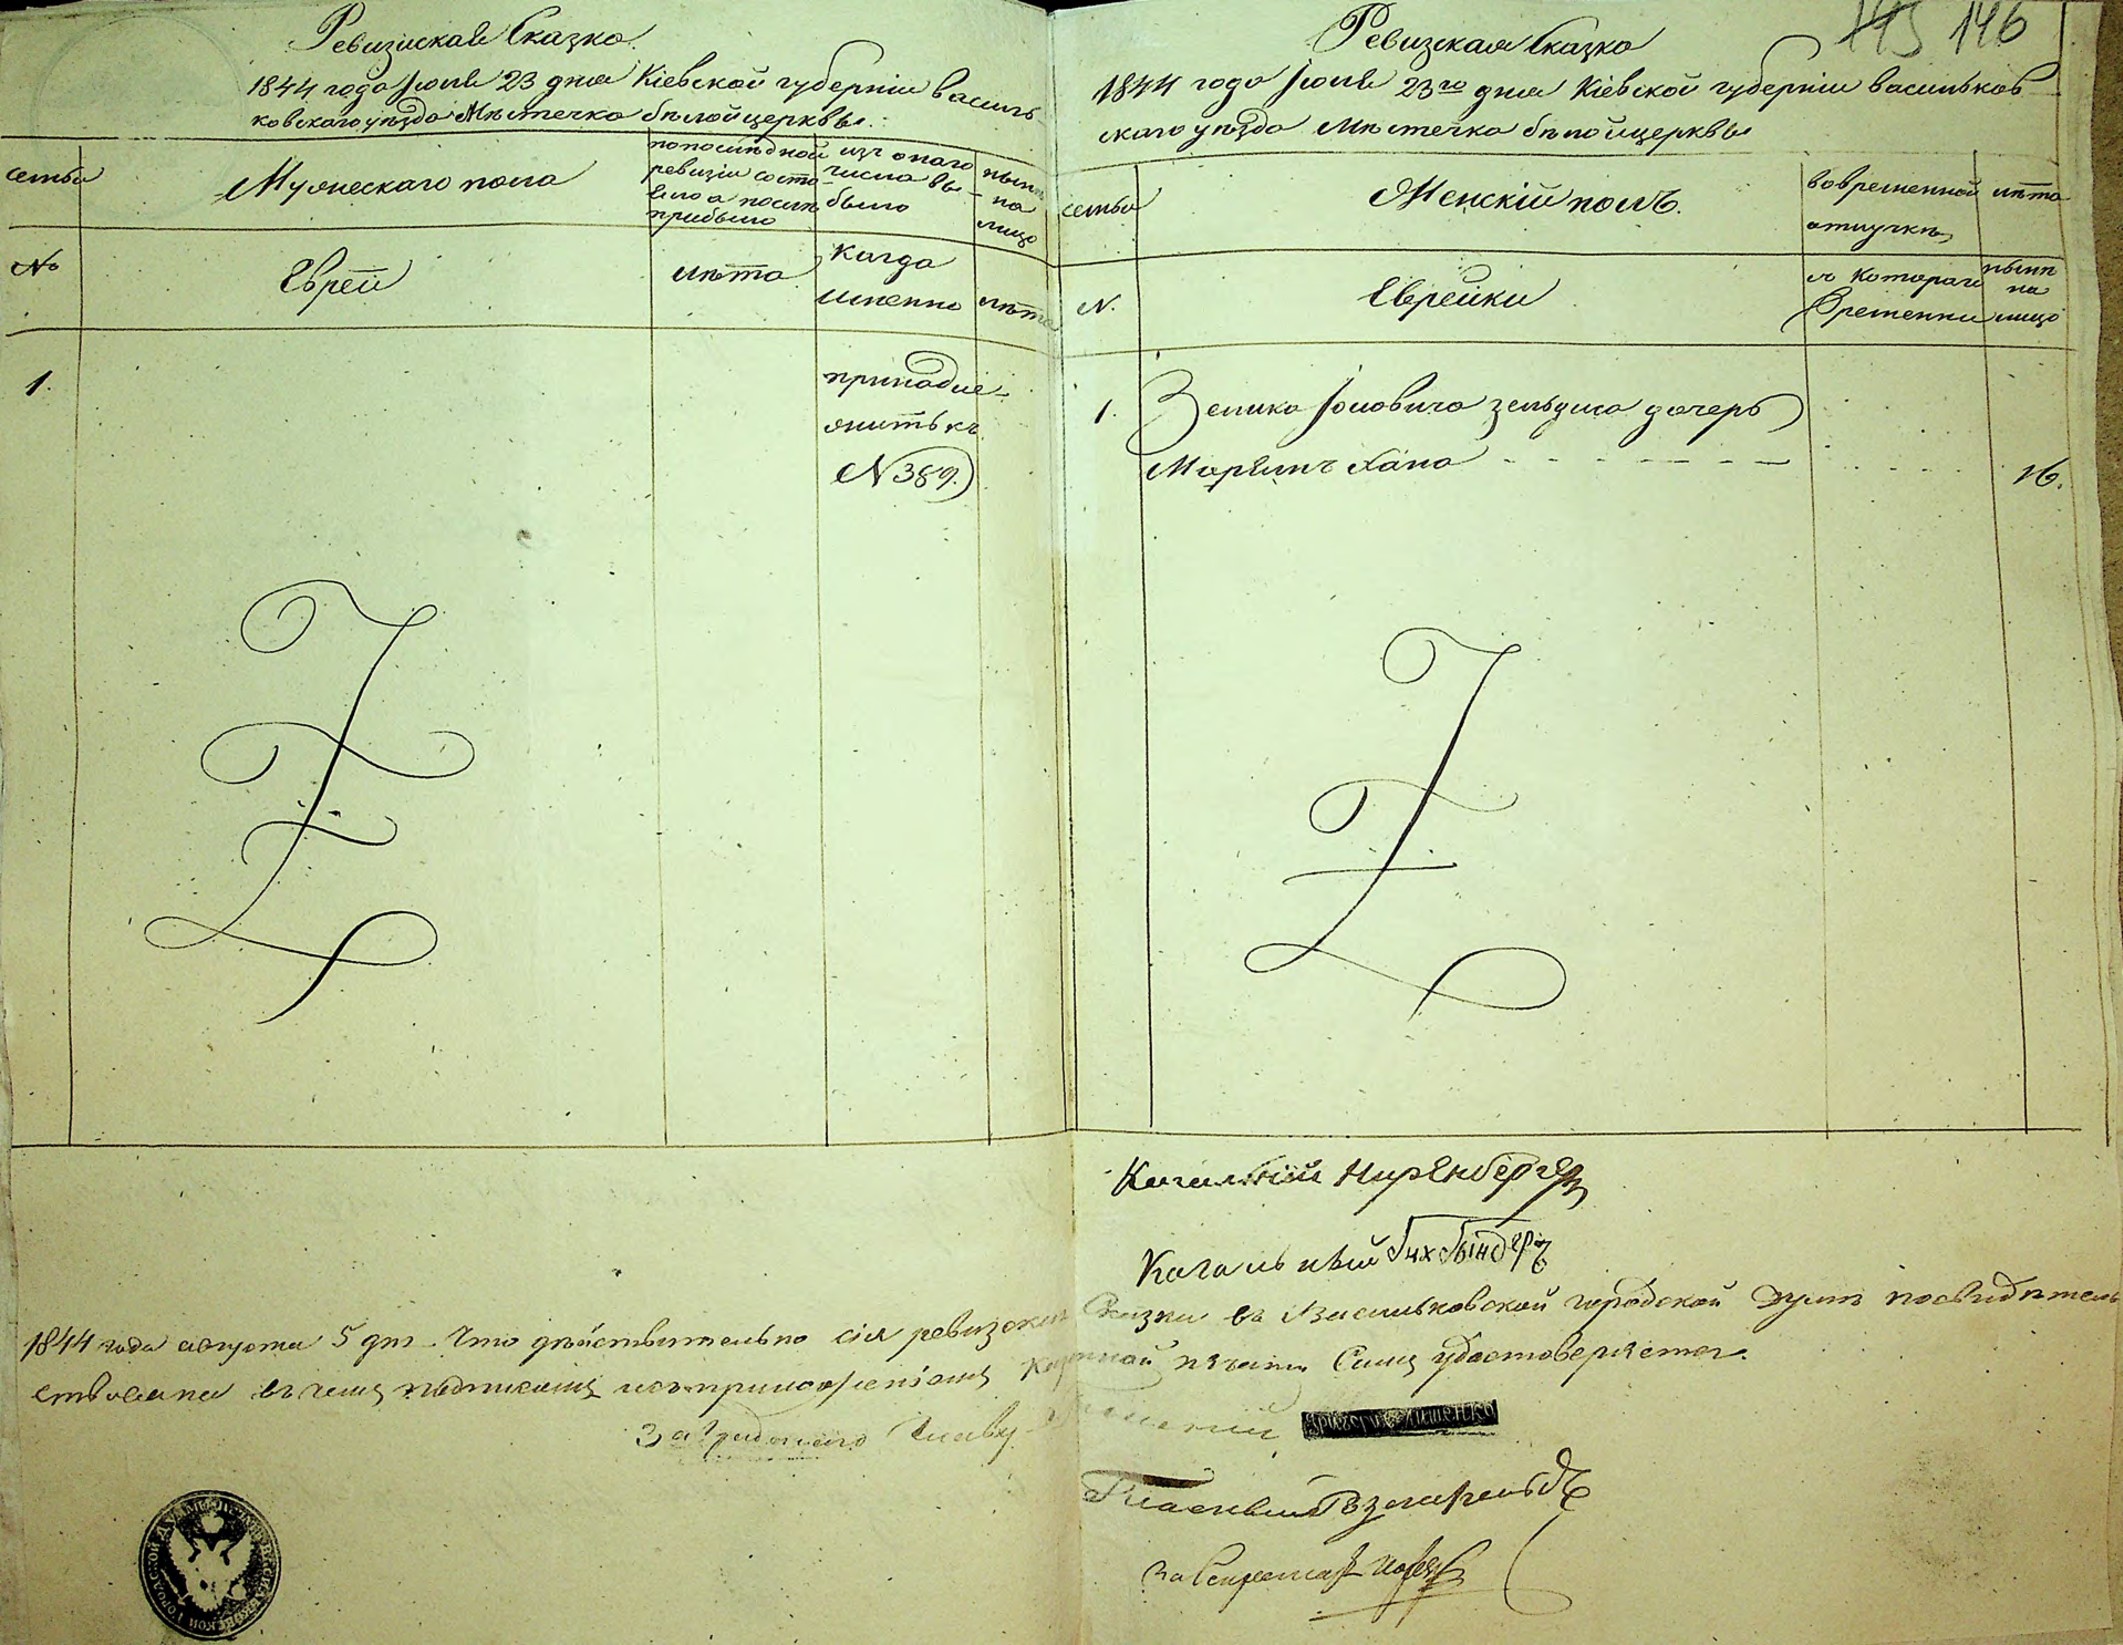 Ревизская Сказка
1844 года Іюля 23 дня Кіевской губерніи Василь-
ковского уѣзда Мѣстечка бѣлойцерквы.
семьи
Мужескаго пола
по послѣдной
ревизіи состо-
яло а послѣ
прибыло
изъ онаго
числа вы-
было
нынѣ
на
лицо
№
Еврей
лѣта
Когда
именно
лѣта
1.
принадле-
житъ къ
N 389.
145 146
Ревизская Сказка
1844 года Іюля 23го дня Кіевской губерніи Васильков-
скаго уѣзда Мѣстечка бѣлойцерквы
семьи
Женскій полъ.
во временной
отлучкѣ
лѣта
N.
Еврейки
съ котораго
Времени
нынѣ
на
лицо
1.
Зелика Іоиовича зельдиса дочерь
Марьимъ Хана
16.
Кагальный Ниренбергъ
Кагальный Бухбиндеръ
1844 года августа 5 дня. Что дѣйствительно сія ревизская Сказка въ Васильковской городской Думѣ посвидѣтель-
ствована въ чемъ подписомъ и съ приложеніемъ казенной печати Симъ удостоверяется.
За Градского Главу
Гласный
За Секретаря